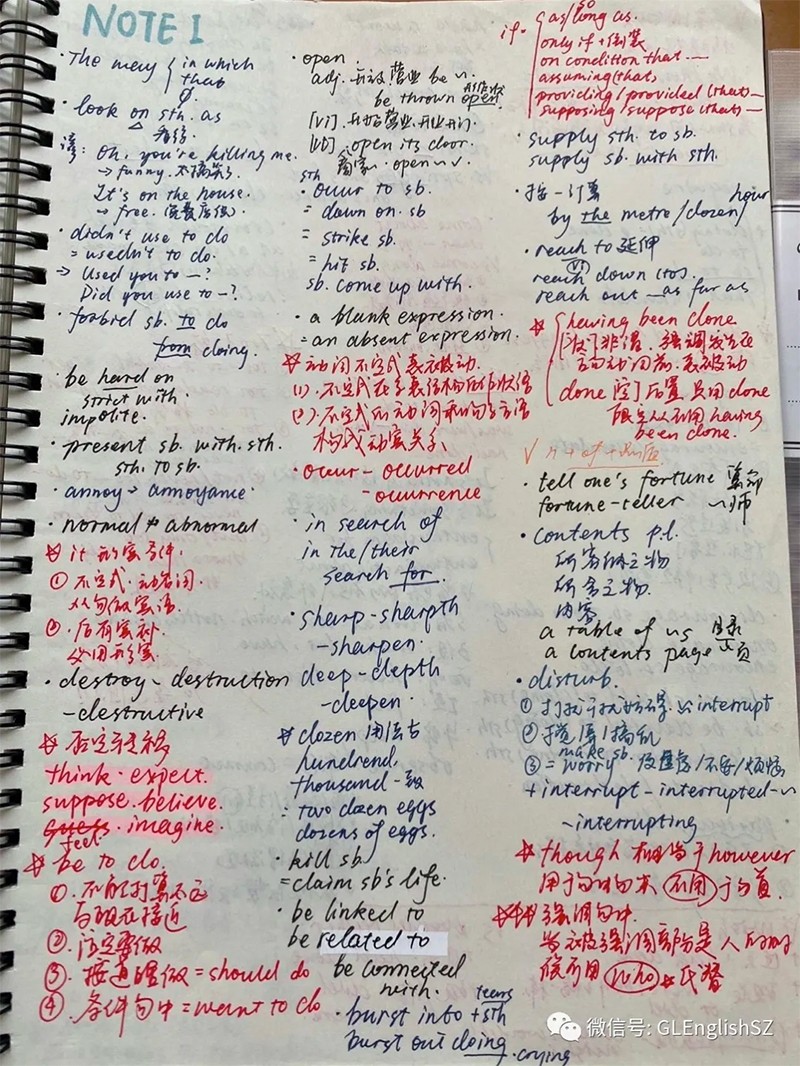 NOTE I
· The way { in which
that
∅.
· look on sth. as
看待
谚: Oh, you're killing me.
→ funny. 太搞笑了
It's on the house.
→ free.
· didn't use to do
= usedn't to do.
→ Used you to —?
Did you use to —?
· forbid sb. to do
from doing.
· be hard on
strict with.
impolite.
· present sb. with. sth.
sth. to sb.
· annoy → annoyance.
· normal ≠ abnormal
it 形宾条件.
① 不定式. 动名词.
从句做宾语.
②. 后有宾补.
必用形宾.
· destroy - destruction
- destructive
否定转移
think. expect.
suppose. believe.
guess. imagine.
feel
be to do.
①.
与现在接近
②. 注定要做
③. 按道理做 = should do
④. 条件句中 = want to do
· open
adj. 开放 营业 be ~.
be thrown open
[vi]. 开始营业. 开业. 开门
[vt]. open its door.
商家. open ~ ~.
sth
· occur to sb.
= dawn on. sb
= strike sb.
= hit sb.
sb. come up with.
· a blank expression.
= an absent expression.
动词不定式表被动.
(1). 不定式在系表结构后作状语
(2). 不定式的动词和句子主语
构成动宾关系
· occur - occurred
- ocurrence
· in search of
in the/their
search for.
· sharp - sharpth
- sharpen.
deep - depth
- deepen.
dozen 用法与
hundrend,
thousand 一致
= two dozen eggs
dozens of eggs.
· kill sb.
= claim sb's life.
· be linked to
be related to
be connected
with.
· burst into + sth
tears
burst out doing. crying
if - { as/long as.
only if + 倒装
on condition that —
assuming that,
providing/provided (that) —
supposing/suppose (that) —
· supply sth. to sb.
supply sb. with sth.
· 按一计算
by the metre/dozen/hour
· reach to 延伸
(vi)
reach down (to).
reach out — as far as
{ having been done
[状] 非谓. 强调发生在
谓动词前. 表被动
done [定]. 后置 只用 done
限定从不用 having
been done.
√ n + of + n
· tell one's fortune 算命
fortune-teller ~师
· contents p.l.
所容纳之物
所含之物.
内容
a table of ~s 目录
a contents page ~页
· disturb.
① interrupt
② 搅屋/搞乱
③ = worry. make sb. 焦虑/不安/烦恼
+ interrupt - interrupted - ~
- interrupting
though 相当于 however
用于句中句末 不用于句首.
强调句中.
当被强调部分是人的时
候可用 who 代替
微信号: GLEnglishSZ